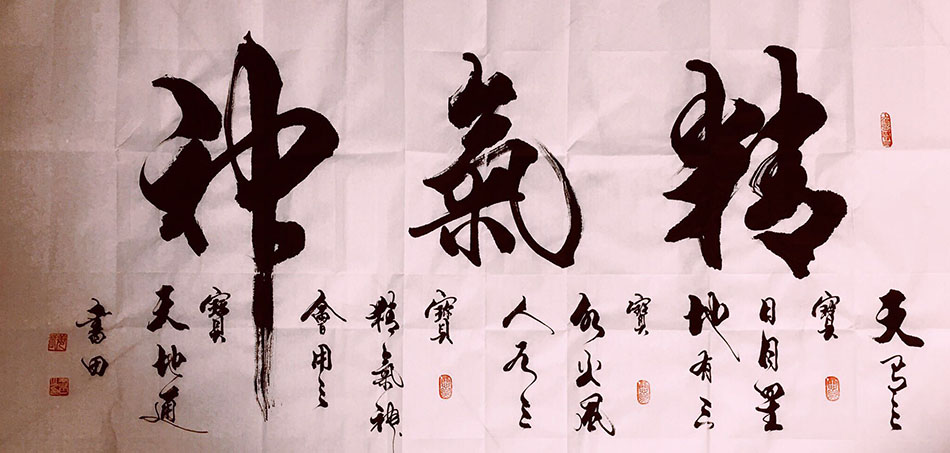 精氣神
天有三
寶
日月星
地有三
寶
水火風
人有三
寶
精氣神
會用三
寶
天地通
書田